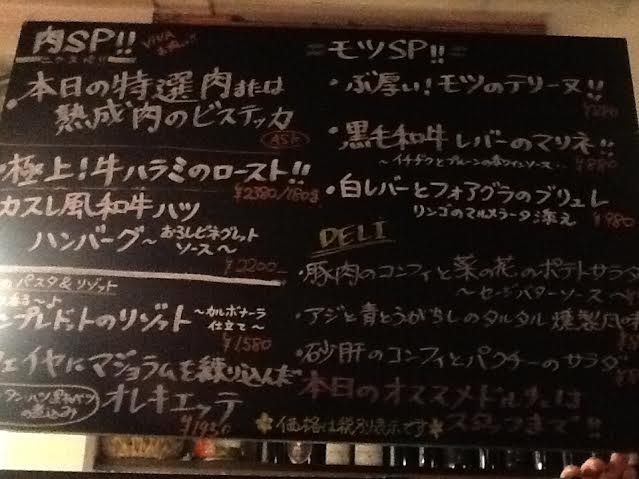 肉SP!!
VIVA
本日の特選肉または
熟成肉のビステッカ
ASK
極上!牛ハラミのロースト!!
¥2380/180g
カスレ風和牛ハツ
ハンバーグ〜おろしビネグレット
ソース〜
¥2200
パスタ&リゾット
ンプレドットのリゾット 〜カルボナーラ
仕立て〜
¥1580
フェイヤにマジョラムを練り込んだ
の煮込み オレキエッテ
¥1930
モツSP!!
・ぶ厚い!モツのテリーヌ!!
・黒毛和牛レバーのマリネ!!
〜イチヂクとプルーンの赤ワインソース〜
¥880
・白レバーとフォアグラのブリュレ
リンゴのマルメラータ添え
¥980
DELI
・豚肉のコンフィと菜の花のポテトサラダ
〜セージバターソース〜
・アジと青とうがらしのタルタル 燻製風味
・砂肝のコンフィとパクチーのサラダ
本日のオススメドルチェは
スタッフまで!!
価格は税別表示です